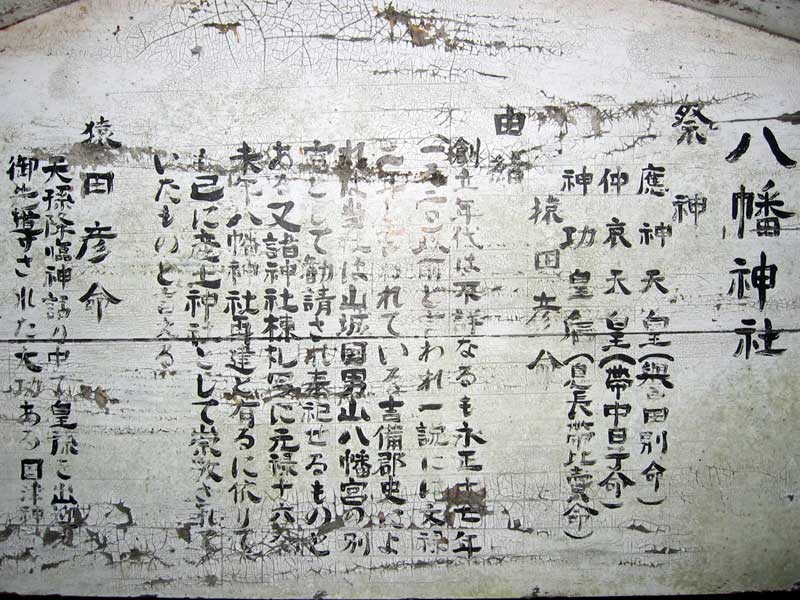 八幡神社
祭神
應神天皇(與田別命)
仲哀天皇(帶中日子命)
神功皇后(息長帶比賣命)
猿田彦命
由緒
創立年代は不詳なるも永正十七年
(一五二〇)以前と云われ一説には文禄
二年と云われている吉備郡史によ
れば当社は山城国男山八幡宮の別
宮として勧請され奉祀せるものと
ある又諸神社棟札写に元禄十六癸
未年八幡神社再建と有るに依りて
も已に産土神社として崇敬されて
いたものと言える
猿田彦命
天孫降臨神話の中で皇孫を出迎え
御先導された大功ある国津神